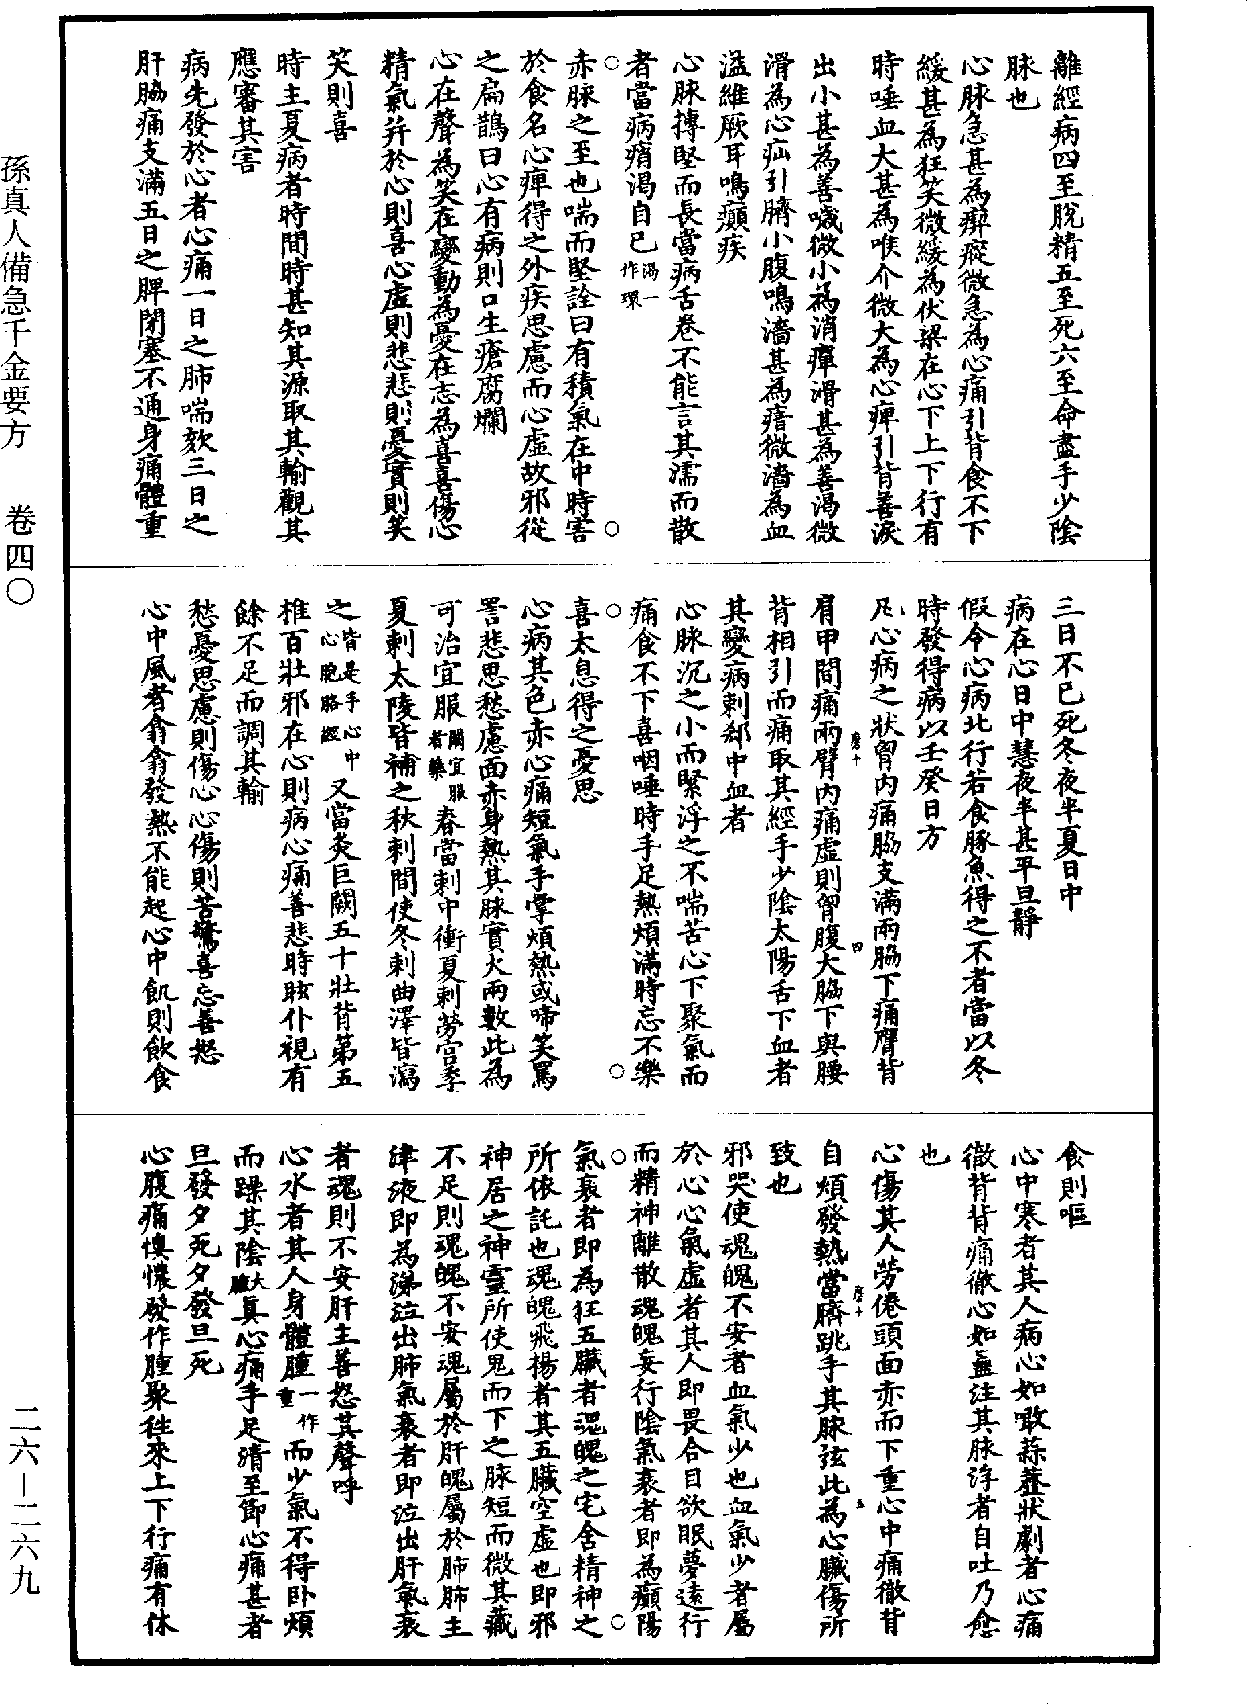 離經病四至脫精五至死六至命盡手少陰
脉也
心脉急甚為瘛瘲微急為心痛引背食不下
緩甚為狂笑微緩為伏梁在心下上下行有
時唾血大甚為喉介微大為心痺引背善淚
出小甚為善噦微小為消癉滑甚為善渴微
滑為心疝引臍小腹鳴濇甚為瘖微濇為血
溢維厥耳鳴癲疾
心脉摶堅而長當病舌卷不能言其濡而散
者當病痟渴自已渴一作環
赤脉之至也喘而堅診曰有積氣在中時害
於食名心痺得之外疾思慮而心虛故邪從
之扁鵲曰心有病則口生瘡腐爛
心在聲為笑在變動為憂在志為喜喜傷心
精氣并於心則喜心虛則悲悲則憂實則笑
笑則喜
時主夏病者時間時甚知其源取其輸觀其
應審其害
病先發於心者心痛一日之肺喘欬三日之
肝脇痛支滿五日之脾閉塞不通身痛體重
三日不已死冬夜半夏日中
病在心日中慧夜半甚平旦靜
假令心病北行若食豚魚得之不者當以冬
時發得病以壬癸日方
凡心病之狀胷內痛脇支滿兩脇下痛膺背
肩甲間痛兩臂內痛虛則胷腹大脇下與腰
背相引而痛取其經手少陰太陽舌下血者
其變病刺郄中血者
心脉沉之小而緊浮之不喘苦心下聚氣而
痛食不下喜咽唾時手足熱煩滿時忘不樂
喜太息得之憂思
心病其色赤心痛短氣手掌煩熱或啼笑罵
詈悲思愁慮面赤身熱其脉實大而數此為
可治宜服闕宜服者藥春當刺中衝夏刺勞宮季
夏刺太陵皆補之秋刺間使冬刺曲澤皆瀉
之皆是手心中心胞胳經又當灸巨闕五十壯背第五
椎百壯邪在心則病心痛善悲時眩仆視有
餘不足而調其輸
愁憂思慮則傷心心傷則苦驚喜忘善怒
心中風者翕翕發熱不能起心中飢則飲食
食則嘔
心中寒者其人病心如噉蒜虀狀劇者心痛
徹背背痛徹心如蠱注其脉浮者自吐乃愈
也
心傷其人勞倦頭面赤而下重心中痛徹背
自煩發熱當臍跳手其脉弦此為心臟傷所
致也
邪哭使魂魄不安者血氣少也血氣少者屬
於心心氣虛者其人即畏合目欲眠夢遠行
而精神離散魂魄妄行陰氣衰者即為癲陽
氣衰者即為狂五臟者魂魄之宅舍精神之
所依託也魂魄飛揚者其五臟空虛也即邪
神居之神靈所使鬼而下之脉短而微其藏
不足則魂魄不安魂屬於肝魄屬於肺肺主
津液即為涕泣出肺氣衰者即泣出肝氣衰
者魂則不安肝主善怒其聲呼
心水者其人身體腫一作重而少氣不得卧煩
而躁其陰大腫真心痛手足清至節心痛甚者
旦發夕死夕發旦死
心腹痛懊憹發作腫聚往來上下行痛有休
孫真人備急千金要方 卷四〇
二六—二六九